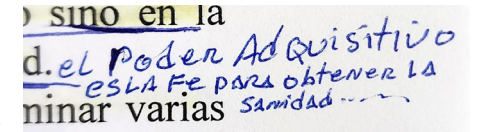 sino en la
d. el Poder AdQuisitivo
es LA Fe para obtener LA
minar varias sanidad